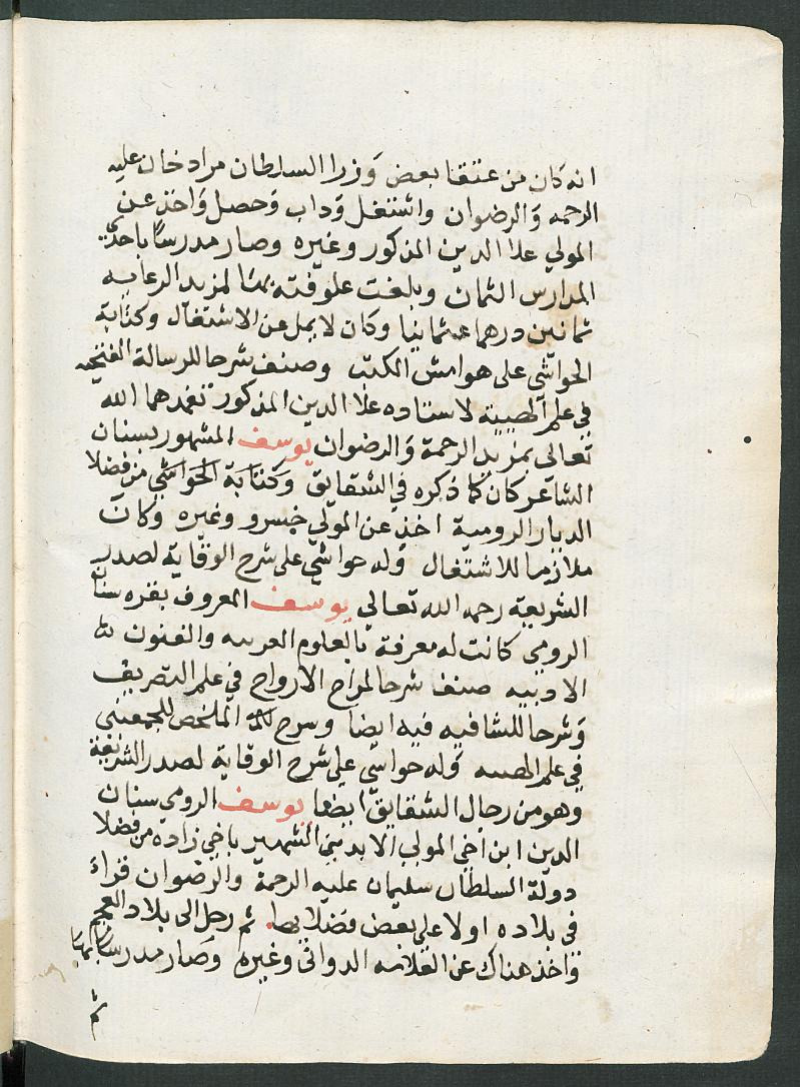 انه كان من عتقا بعض وزرا السلطان مراد خان عليه
الرحمه والرضوان واشتغل وداب وحصل واخذ عن
المولي علا الدين المذكور وغيره وصار مدرسا باحدي
المدارس الثمان وبلغت علوفته بها لمزيد الرعايه
ثمانين درهما عثمانيا وكان لا يمل عن الاشتغال وكتابة
الحواشي على هوامش الكتب وصنف شرحا للرسالة الفتحيه
في علم الهيية لاستاده علا الدين المذكور تغمدهما الله
تعالى بمزيد الرحمة والرضوان يوسف المشهور بسنان
الشاعر كان كما ذكره في الشقايق وكتابة الحواشي من فضلا
الديار الرومية اخذ عن المولى خسرو وغيره وكان
ملازما للاشتغال وله حواشي على شرح الوقاية لصدر
الشريعة رحمه الله تعالي يوسف المعروف بقره سنان
الرومي كانت له معرفة بالعلوم العربيه والفنون
الادبيه صنف شرحا لمراح الارواح في علم التصريف
وشرحا للشافيه فيه ايضا وشرح الملخص للجغميني
في علم الهييه وله حواشي علي شرح الوقاية لصدر الشريعة
وهو من رجال الشقايق ايضا يوسف الرومي سنان
الدين ابن اخي المولى الايديني الشهير باخي زاده من فضلا
دولة السلطان سليمان عليه الرحمة والرضوان قراء
في بلاده اولا علي بعض فضلايها ثم رحل الى بلاد العجم
واخذ هناك عن العلامه الدواني وغيره وصار مدرسا بها
ثم